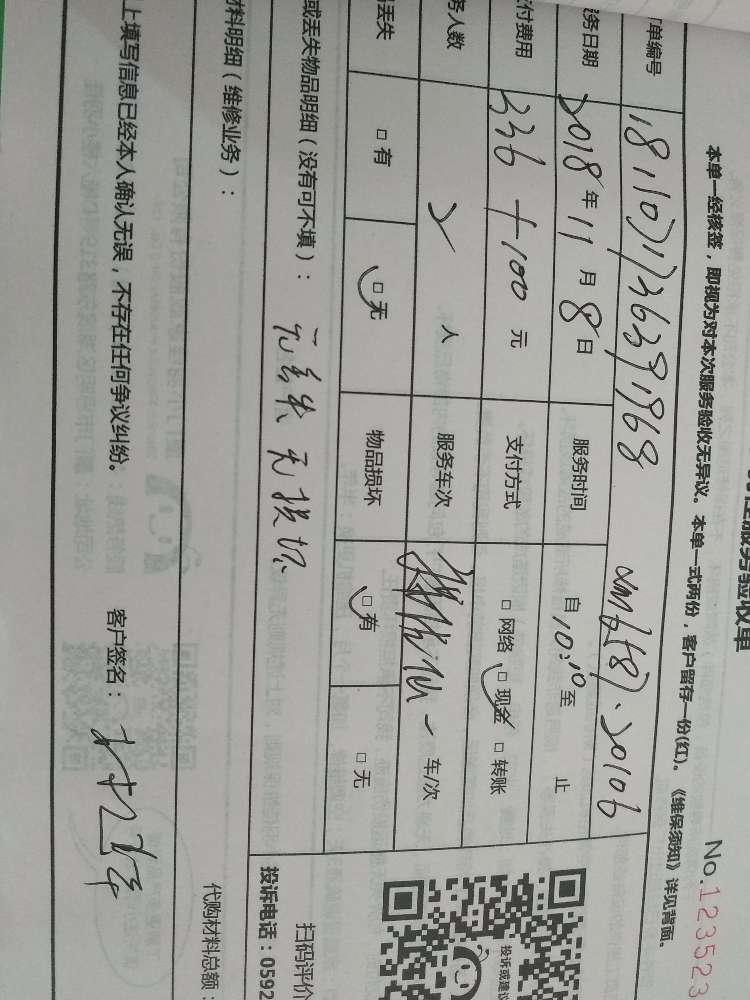 服务验收单
No.123523
本单一经核签，即视为对本次服务验收无异议。本单一式两份，客户留存一份(红)。《维保须知》详见背面。
单编号
务日期 2018年11月8日 服务时间 自10:10至 止
付费用 336+100元 支付方式 □网络 □现金 □转账
务人数 2人 服务车次 一车/次
丢失 □有 □无 物品损坏 □有 □无
或丢失物品明细（没有可不填）： 无丢失 无损坏
材料明细（维修业务）：
代购材料总额：
上填写信息已经本人确认无误，不存在任何争议纠纷。 客户签名：
投诉或建议
扫码评价
投诉电话：0592